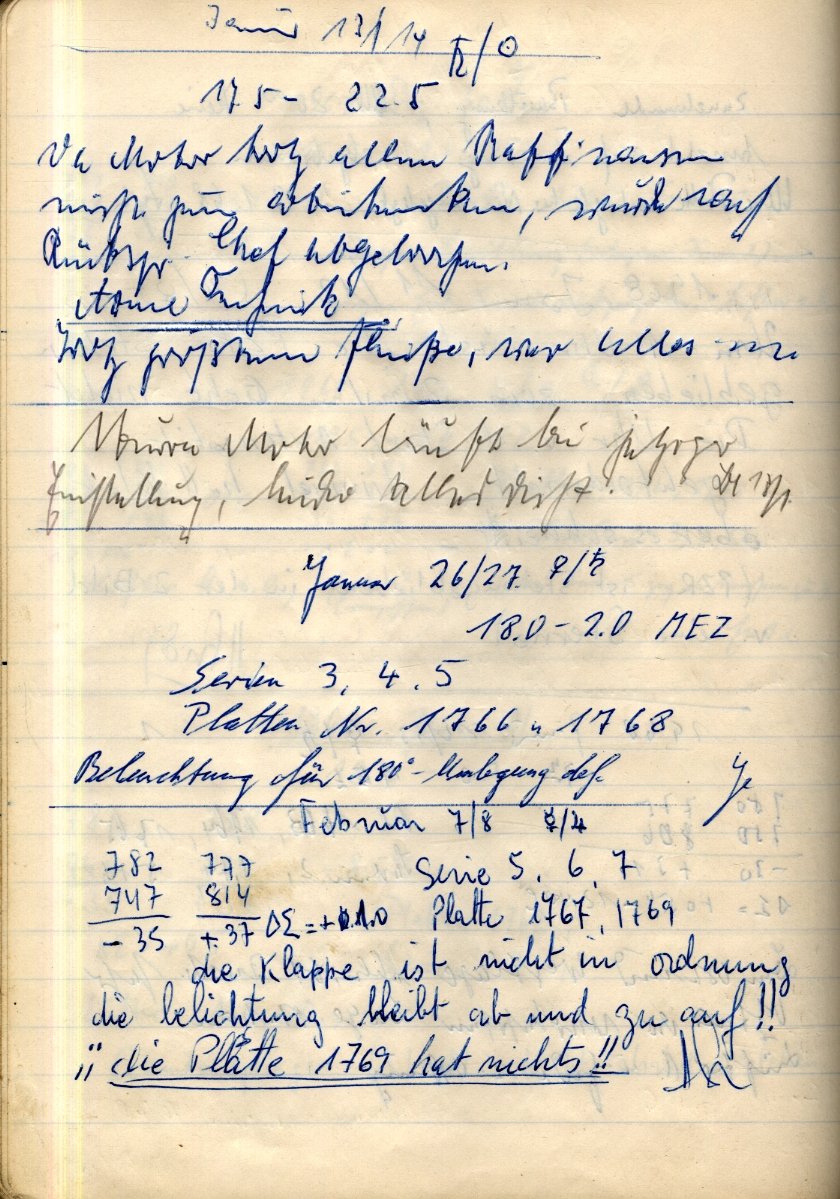 Januar 13/14 ♄/☉
17.5 - 22.5
Da Motor trotz allem
nicht zum, wurde auf
Rückspr. Chef abgebrochen.
Arme Technik
Trotz größtem Fleiße, war alles
Motor läuft bei jetziger
Einstellung, leider alles dicht.
Januar 26/27 ♀/♄
18.0 - 2.0 MEZ
Serien 3, 4, 5
Platten Nr. 1766 u 1768
Beleuchtung für 180°-Umlegung def.
Februar 7/8 ☿/♃
782 777 Serie 5, 6, 7
747 814
- 35 + 37 ΔΣ = Platte 1767, 1769
die Klappe ist nicht in ordnung
die belichtung bleibt ab und zu auf!!
¡¡ die Platte 1769 hat nichts!!